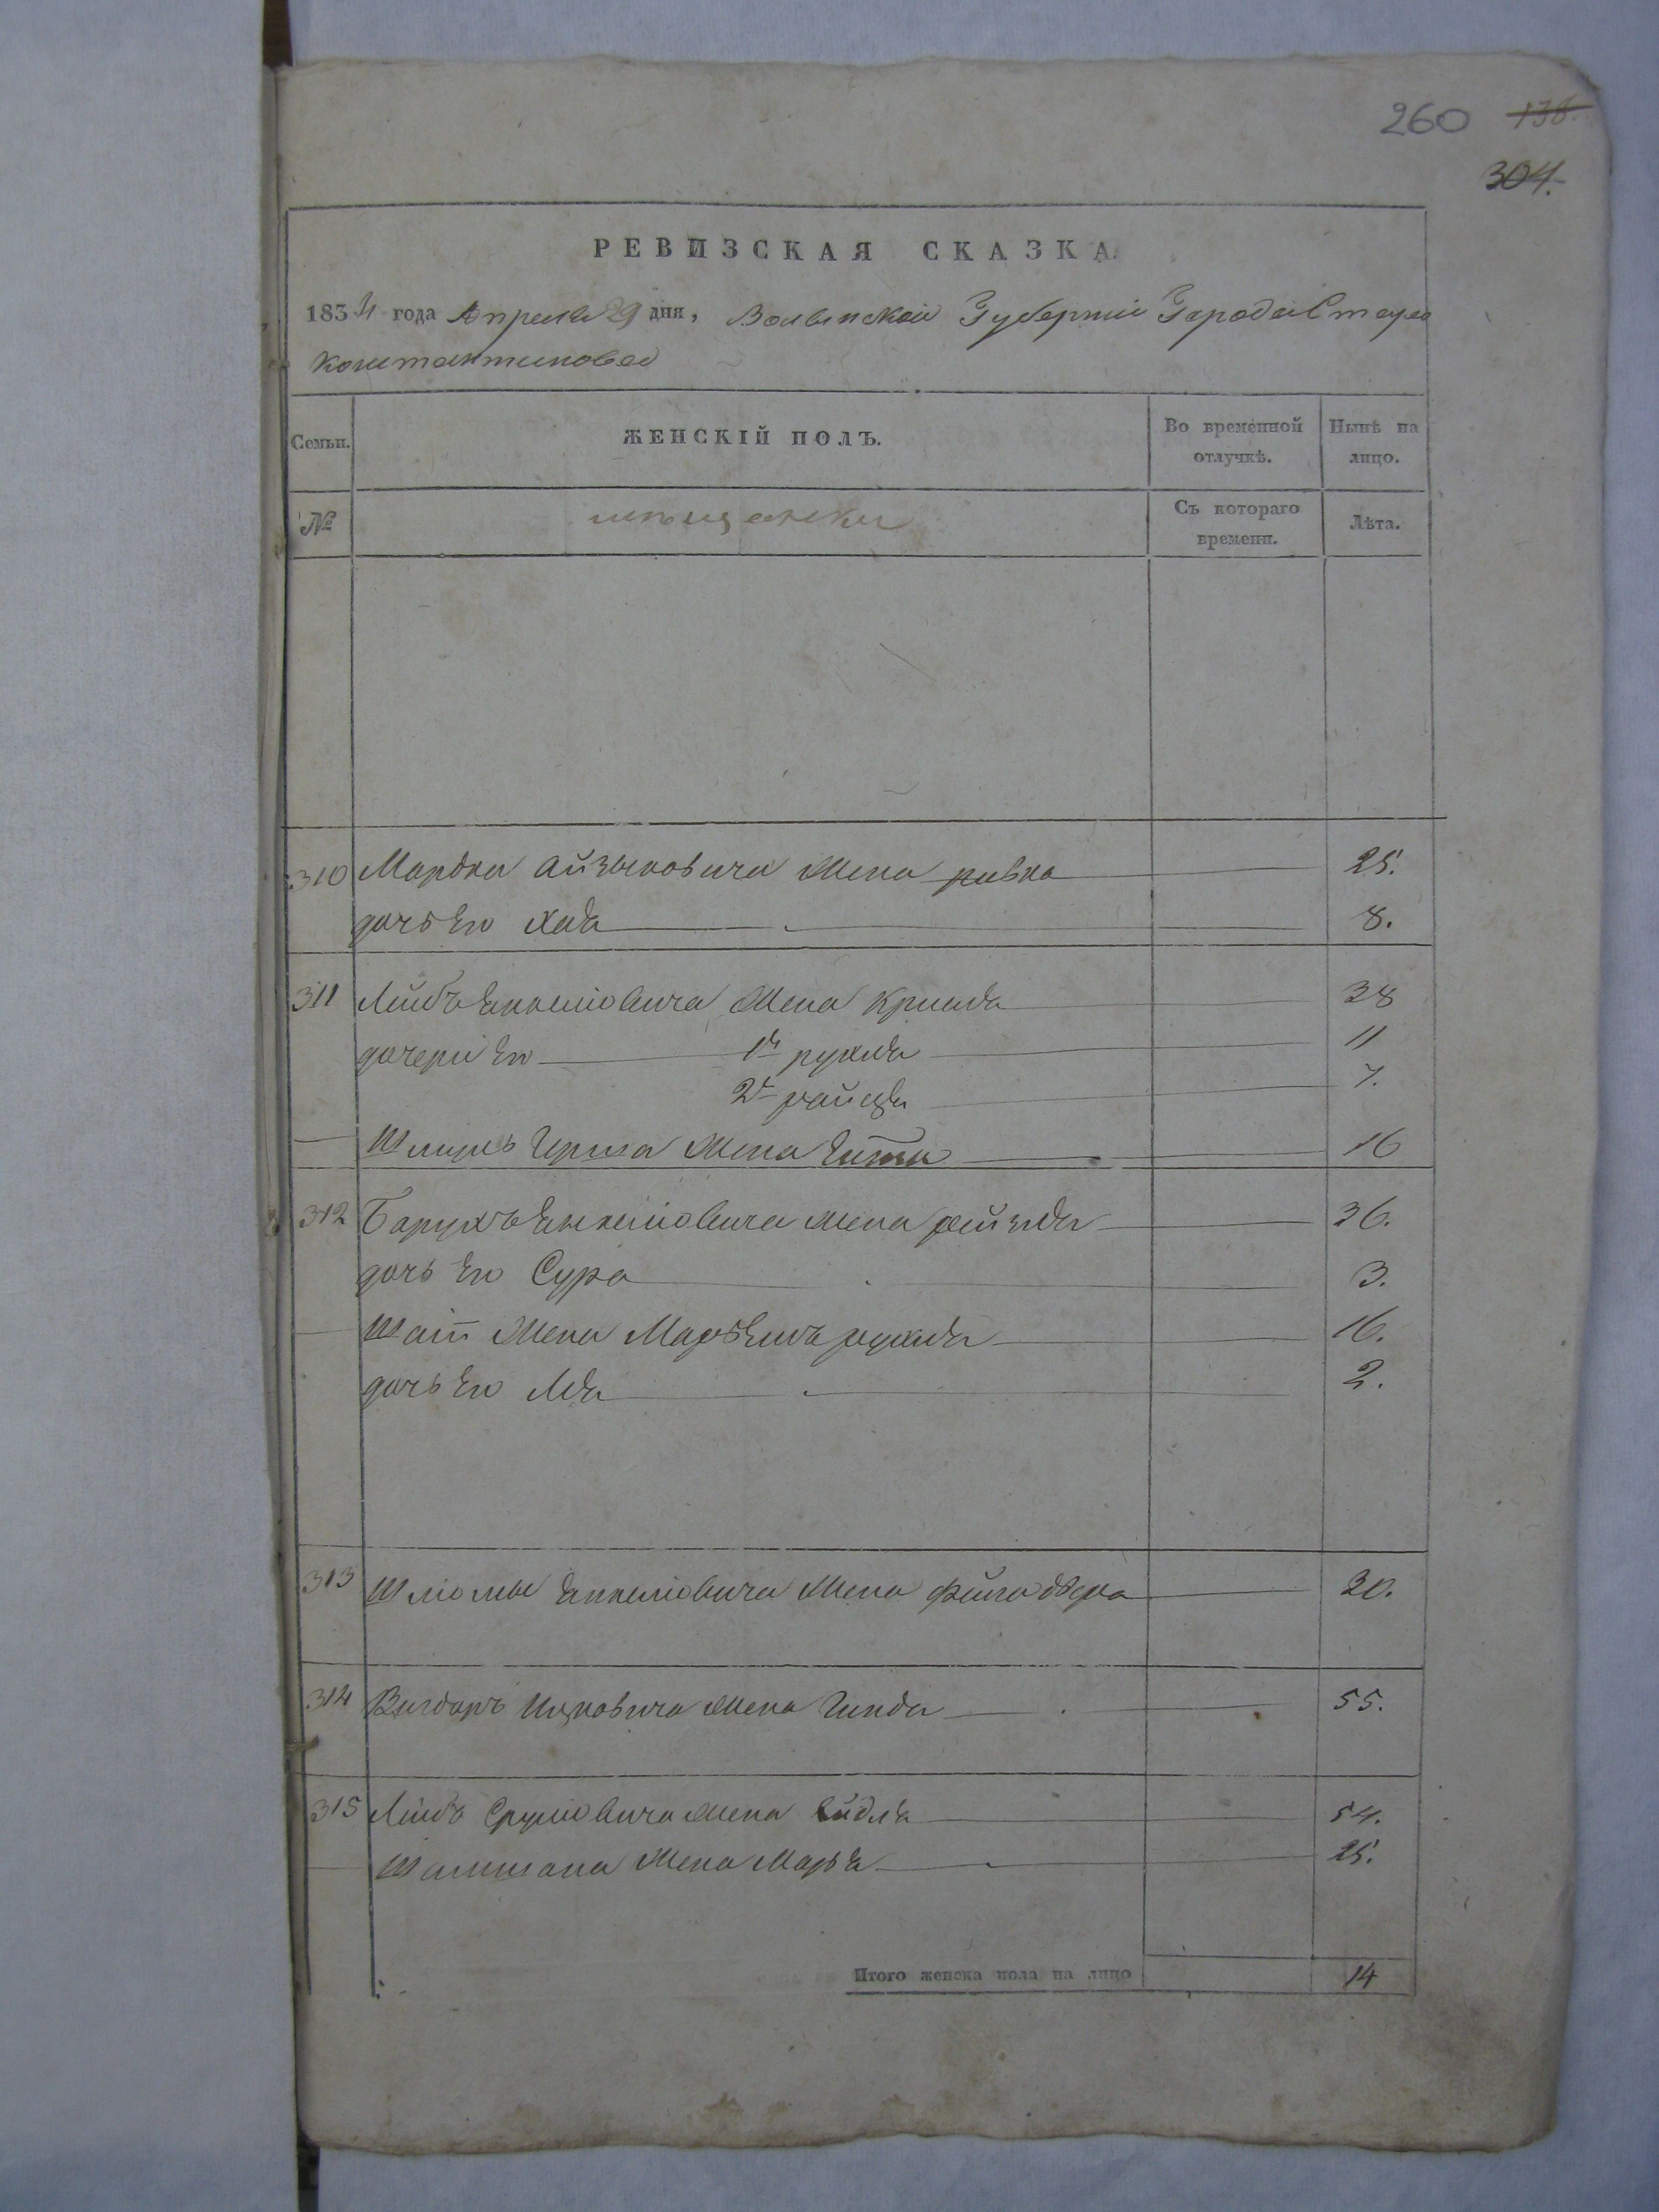 260 138.
304.
РЕВИЗСКАЯ СКАЗКА.
1834 года Апреля 29 дня, Волынской Губерніи Города Старо
константинова
Семьи. ЖЕНСКІЙ ПОЛЪ. Во временной отлучкѣ. Нынѣ на лицо.
№ мѣщанки Съ котораго времени. Лѣта.
310 Мордка Айзыковича Жена ривка 25.
дочь Его Хая 8.
311 Лейбъ Янкелiовича Жена 38
дочери Его 1я рухля 11
2я 7.
Герша Жена Гитя 16
312 Барухъ Янкелiовича жена рейзля 36.
дочь Его Сура 3.
Жена рухля 16.
дочь Его Лея 2.
313 Шліомы Янкелiовича Жена 20.
314 Вигдоръ Ицковича Жена Гинда 55.
315 Лейбъ Срулiовича жена Ейдля 54.
Жена Марья 25.
Итого женска пола на лицо 14